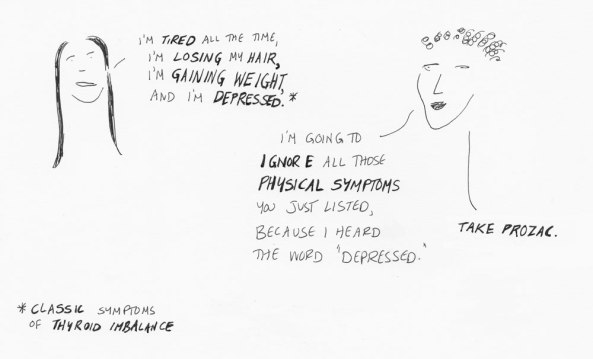 I'M TIRED ALL THE TIME,
I'M LOSING MY HAIR,
I'M GAINING WEIGHT,
AND I'M DEPRESSED.*
I'M GOING TO
IGNORE ALL THOSE
PHYSICAL SYMPTOMS
YOU JUST LISTED,
BECAUSE I HEARD
THE WORD "DEPRESSED."
TAKE PROZAC.
*CLASSIC SYMPTOMS
OF THYROID IMBALANCE